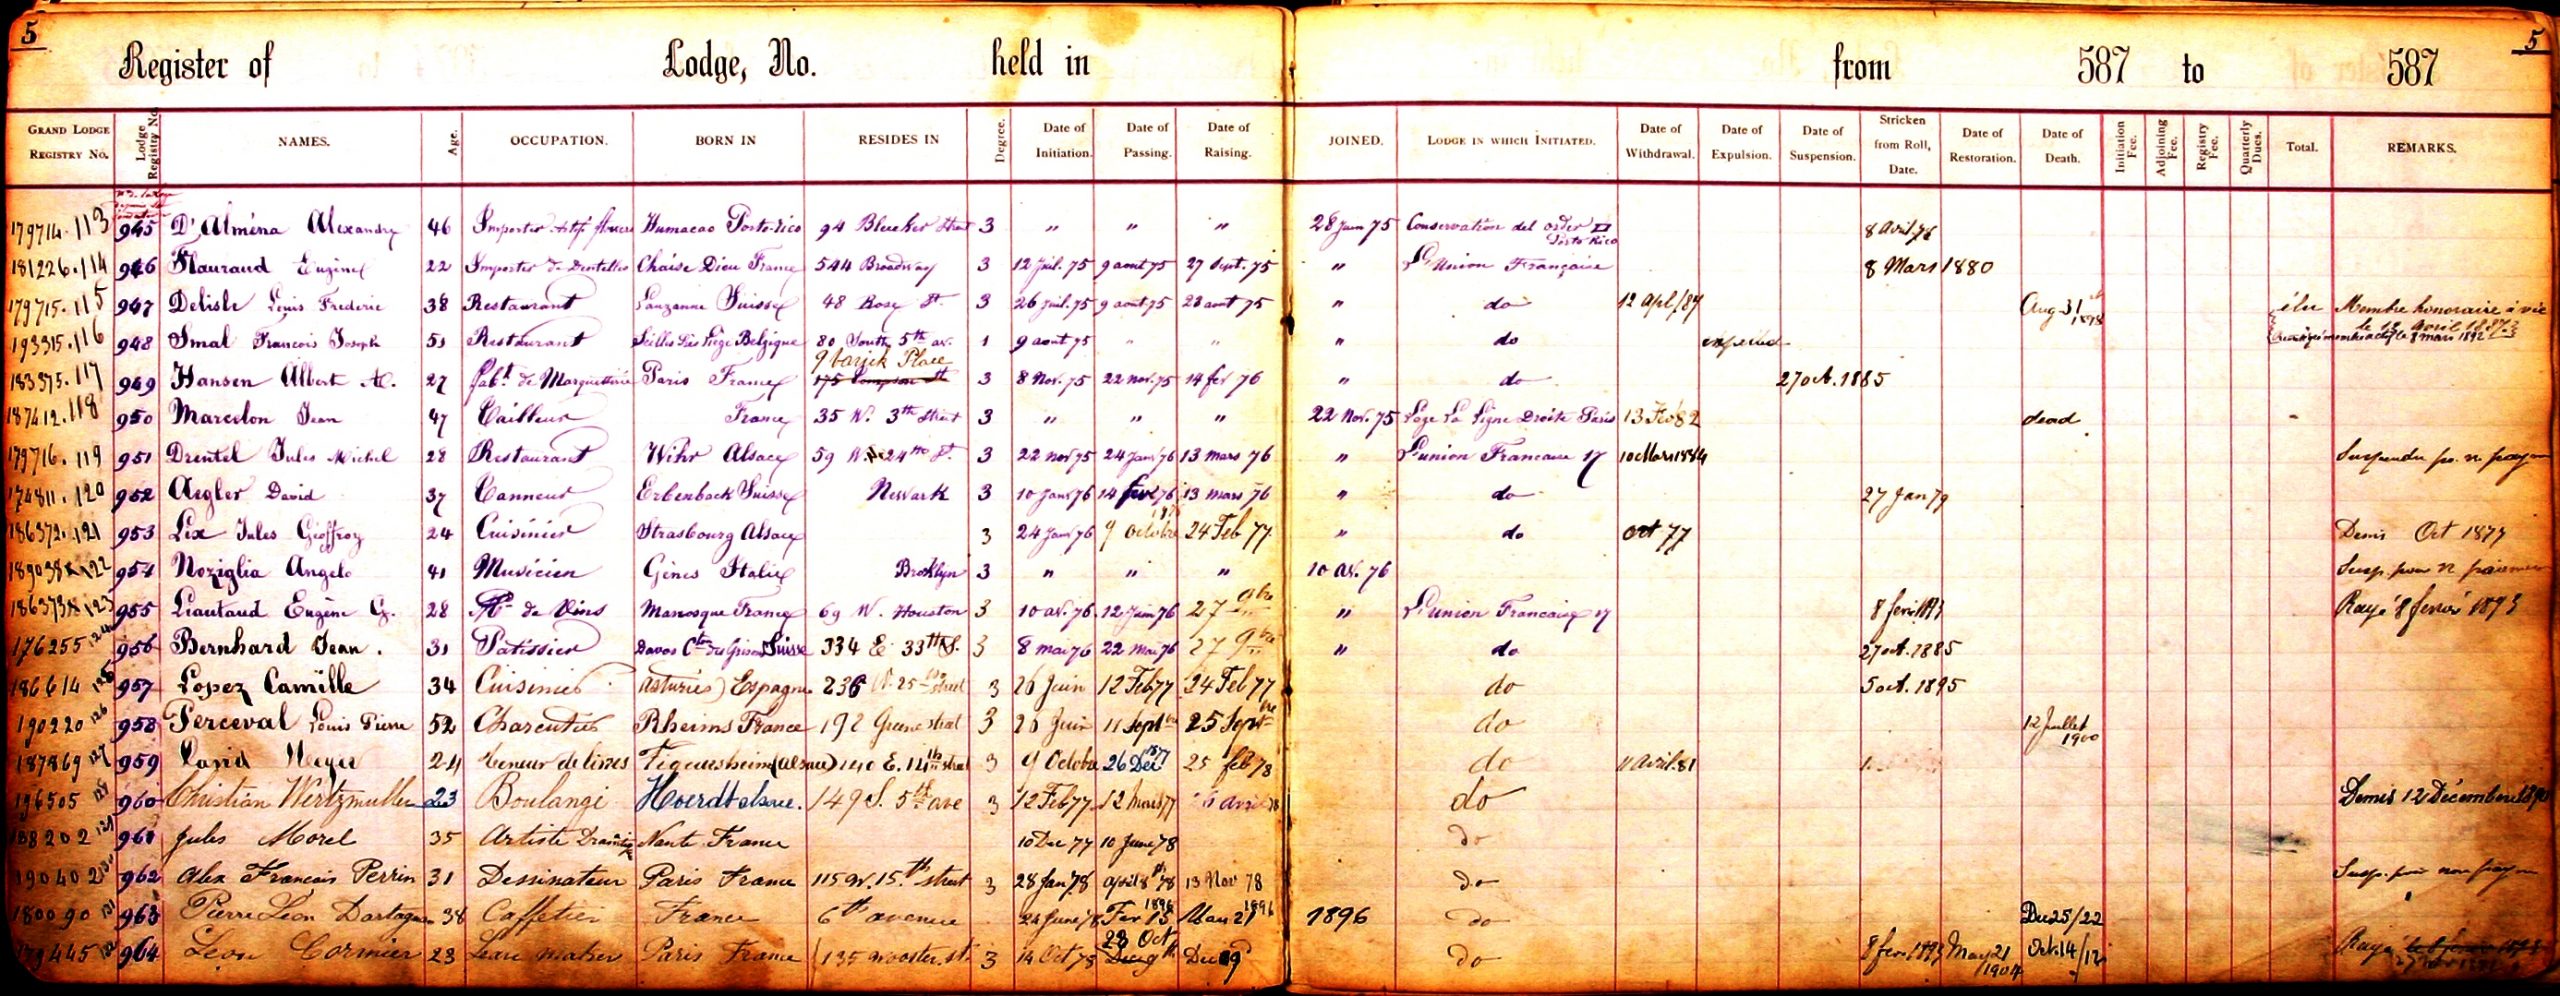 5 5
Register of Lodge, No. held in from 587 to 587
GRAND LODGE REGISTRY NO. Lodge Registry No. NAMES. Age. OCCUPATION. BORN IN RESIDES IN Degree. Date of Initiation. Date of Passing. Date of Raising. JOINED. LODGE IN WHICH INITIATED. Date of Withdrawal. Date of Expulsion. Date of Suspension. Stricken from Roll, Date. Date of Restoration. Date of Death. Initiation Fee. Adjoining Fee. Registry Fee. Quarterly Dues. Total. REMARKS.
179714. 113 945 D'Alména Alexandre 46 Importer Humacao Porto-rico 94 Bleecker 3 " " " 28 Juin 75 Conservation del order II Porto Rico 8 Avril 78
181226. 114 946 Flauraud Eugène 22 Importer de Dentelles Chaise Dieu France 544 Broadway 3 12 Juil. 75 9 aout 75 27 Sept. 75 " L'Union Française 8 Mars 1880
179715. 115 947 Delisle Louis Frederic 38 Restaurant Lauzanne Suisse 48 Rose St. 3 26 Juil. 75 9 aout 75 23 aout 75 " do 12 Apl/87 Aug 31 1898 élu Membre honoraire à vie
le 12 avril 1887
193315. 116 948 Smal Francois Joseph 51 Restaurant Liége Belgique 80 South 5th av. 1 9 aout 75 " " " do membre actif le 8 mars 1892
9 Place
183375. 117 949 Hansen Albert 27 fabt de Marqueterie Paris France 175 3 8 Nov. 75 22 Nov. 75 14 fev 76 " do 27 oct. 1885
187412. 118 950 Marcelon Jean 47 Tailleur France 35 W. 3th Street 3 " " " 22 Nov. 75 Loge La Ligne Droite Paris 13 Feb 82 dead
179716. 119 951 Drentel Jules Michel 28 Restaurant Wihr Alsace 59 W. 24th St. 3 22 Nov 75 24 Janv 76 13 mars 76 " L'union Francaise 17 10 Mars 1884 Suspendu
174811. 120 952 Aegler David 37 Tanneur Erlenback Suisse Newark 3 10 Janv 76 14 fev 76 13 mars 76 " do 27 Jan 79
186372. 121 953 Lix Jules Geoffroy 24 Cuisinier Strasbourg Alsace 3 24 Janv 76 9 Octobre 24 Feb 77 " do Oct 77 Demis Oct 1877
122 954 Noziglia Angelo 41 Musicien Gênes Italie Brooklyn 3 " " " 10 av. 76 Susp. pour n paiement
123 955 Liautaud Eugène G. 28 Md de Vins Manosque France 69 W. Houston 3 10 av. 76 12 Juin 76 27 9bre " L'union Francaise 17 8 fevr 1893 Rayé 8 fevrier 1893
176255 124 956 Bernhard Jean. 31 Patissier Davos Cton des Grisons Suisse 334 E. 33th St. 3 8 mai 76 22 mai 76 27 9bre " do 27 oct. 1885
186614 125 957 Lopez Camille 34 Cuisinier (Asturies) Espagne 236 W. 25 street 3 26 Juin 12 Feb 77 24 Feb 77 do 5 oct. 1895
190220 126 958 Perceval Louis Pierre 52 Charcutier Rheims France 192 Greene street 3 26 Juin 11 Septbre 25 Septbre do 12 Juillet 1900
187869 127 959 David Meyer 24 teneur de livres (Alsace) 140 E. 14th street 3 9 Octobre 26 Dec 1877 25 feb 78 do 11 Avril. 81
196505 128 960 Christian Wertzmuller 23 Boulangé Hoerdt alsace. 149 S. 5th ave 3 12 Feb 77 12 Mars 77 do Demis 12 Décembre
188202 129 961 Jules Morel 35 Artiste Dramatiq Nante France 10 Dec 77 10 June 78 do
190402 130 962 Alex Francois Perrin 31 Dessinateur Paris France 115 W. 15th street 3 28 Jan 78 April 8th 78 13 Nov 78 do Susp. pour non
180090 131 963 Pierre Léon Dartagnan 38 Caffetier France 6th avenue 24 June 78 Fev 15 1896 Mars 21 1896 1896 do Dec 25/22
28 Oct
179445 132 964 Léon Cormier 23 maker Paris France 135 Wooster. st. 3 14 Oct 78 Dec 9th Dec do 8 fevr 1893 May 21 1904 Oct. 14/12 Rayé